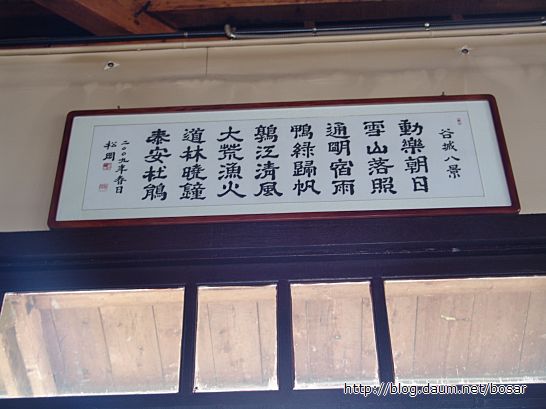 谷城八景
動樂朝日
雪山落照
通明宿雨
鴨綠歸帆
鶉江清風
大荒漁火
道林曉鐘
泰安杜鵑
二〇〇九年春日
松岡
http://blog.daum.net/bosar